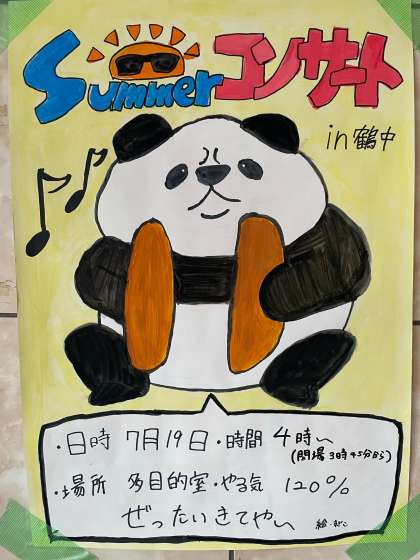 Summerコンサート
in 鶴中
・日時 7月19日・時間 4時〜
(開場 3時45分から)
・場所 多目的室・やる気 120%
ぜったいきてや〜